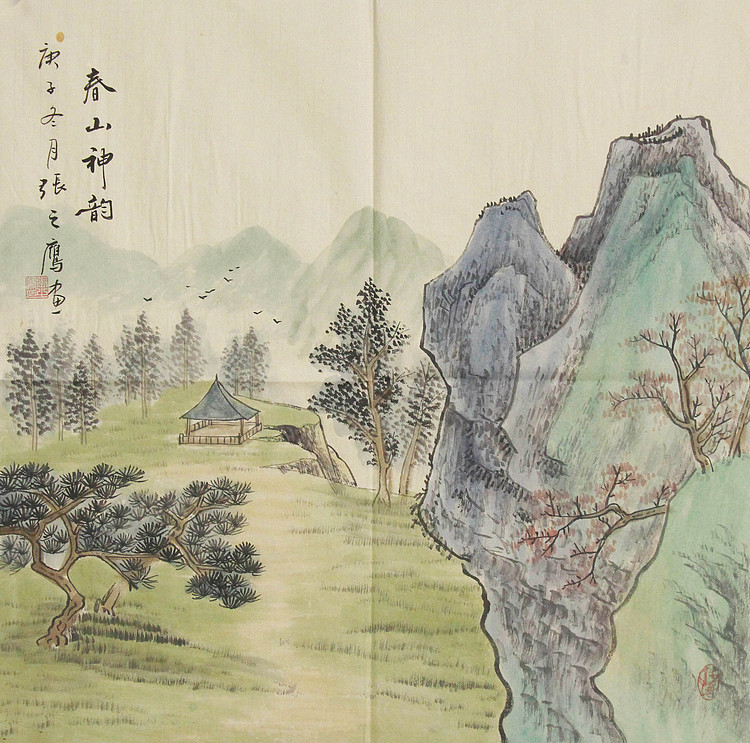 春山神韵
庚子冬月張之鷹画